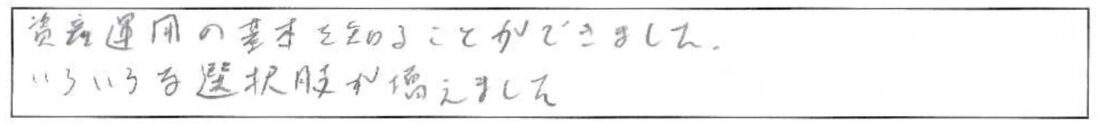 資産運用の基本を知ることができました.
いろいろな選択肢が増えました